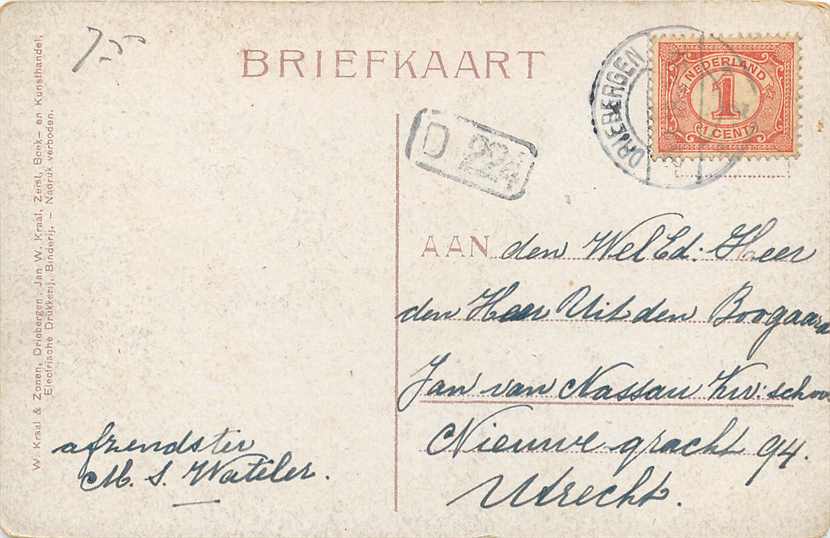 7.50
BRIEFKAART
DRIEBERGEN
NEDERLAND
1
1 CENT
D 224
AAN den WelEd. Heer
den Heer Uit den Boogaard
Jan van Nassau Kw: school
Nieuwe gracht 94.
Utrecht.
afzendster
M. S. Wateler.
W. Kraal & Zonen, Driebergen. Jan W. Kraal, Zeist, Boek- en Kunsthandel,
Electrische Drukkerij, Binderij. — Nadruk verboden.